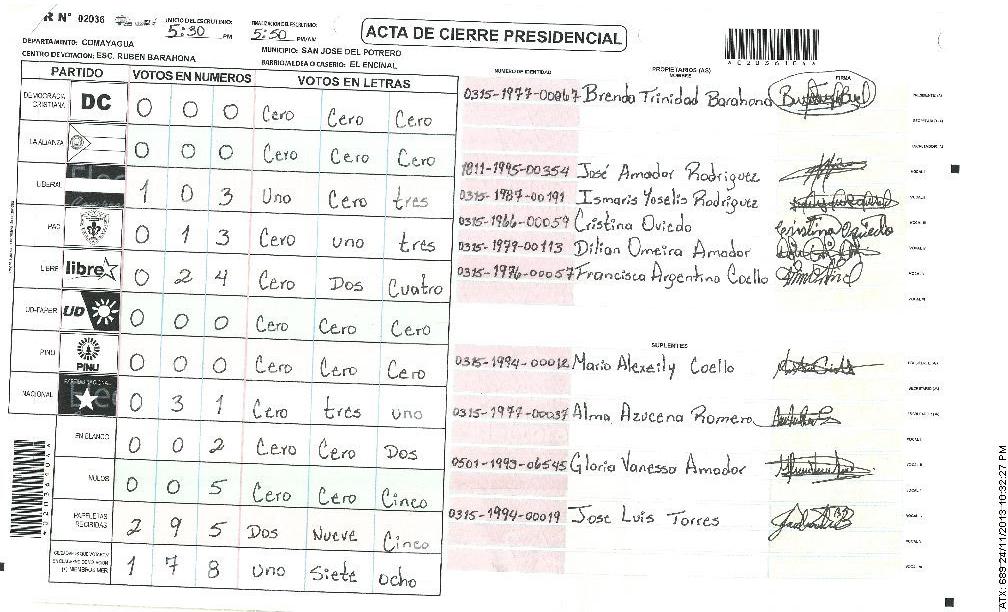 R N° 02036
INICIO DEL ESCRUTINIO: 5:30 PM
FINALIZACION DEL ESCRUTINIO: 5:50 PM/AM
ACTA DE CIERRE PRESIDENCIAL
DEPARTAMENTO: COMAYAGUA
MUNICIPIO: SAN JOSE DEL POTRERO
CENTRO DE VOTACION: ESC. RUBEN BARAHONA
BARRIO/ALDEA O CASERIO: EL ENCINAL
PARTIDO VOTOS EN NUMEROS VOTOS EN LETRAS
DEMOCRACIA CRISTIANA DC 0 0 0 Cero Cero Cero
LA ALIANZA 0 0 0 Cero Cero Cero
LIBERAL 1 0 3 Uno Cero tres
PAC 0 1 3 Cero uno tres
LIBRE libre 0 2 4 Cero Dos Cuatro
UD-FAPER UD 0 0 0 Cero Cero Cero
PINU PINU 0 0 0 Cero Cero Cero
NACIONAL 0 3 1 Cero tres uno
EN BLANCO 0 0 2 Cero Cero Dos
NULOS 0 0 5 Cero Cero Cinco
PAPELETAS RECIBIDAS 2 9 5 Dos Nueve Cinco
1 7 8 uno Siete ocho
NUMERO DE IDENTIDAD
PROPIETARIOS (AS)
NOMBRE
FIRMA
0315-1977-00067 Brenda Trinidad Barahona
1811-1995-00354 José Amador Rodriguez
0315-1987-00191 Ismaris Yoselis Rodriguez
0315-1966-00059 Cristina Oviedo
0315-1979-00113 Dilian Omeira Amador
0315-1976-00057 Francisca Argentina Coello
SUPLENTES
0315-1994-00012 Mario Alexeily Coello
0315-1977-00037 Alma Azucena Romero
0501-1993-06545 Gloria Vanessa Amador
0315-1994-00019 Jose Luis Torres
ATX: 689:24/11/2013 10:32:27 PM